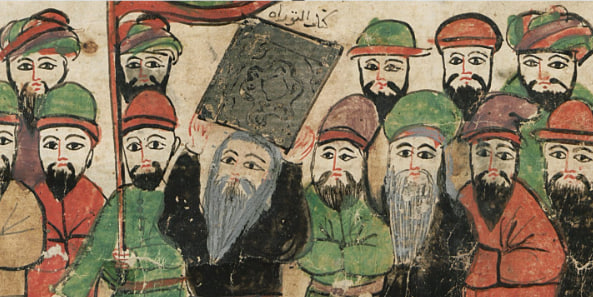 كتاب التوراه